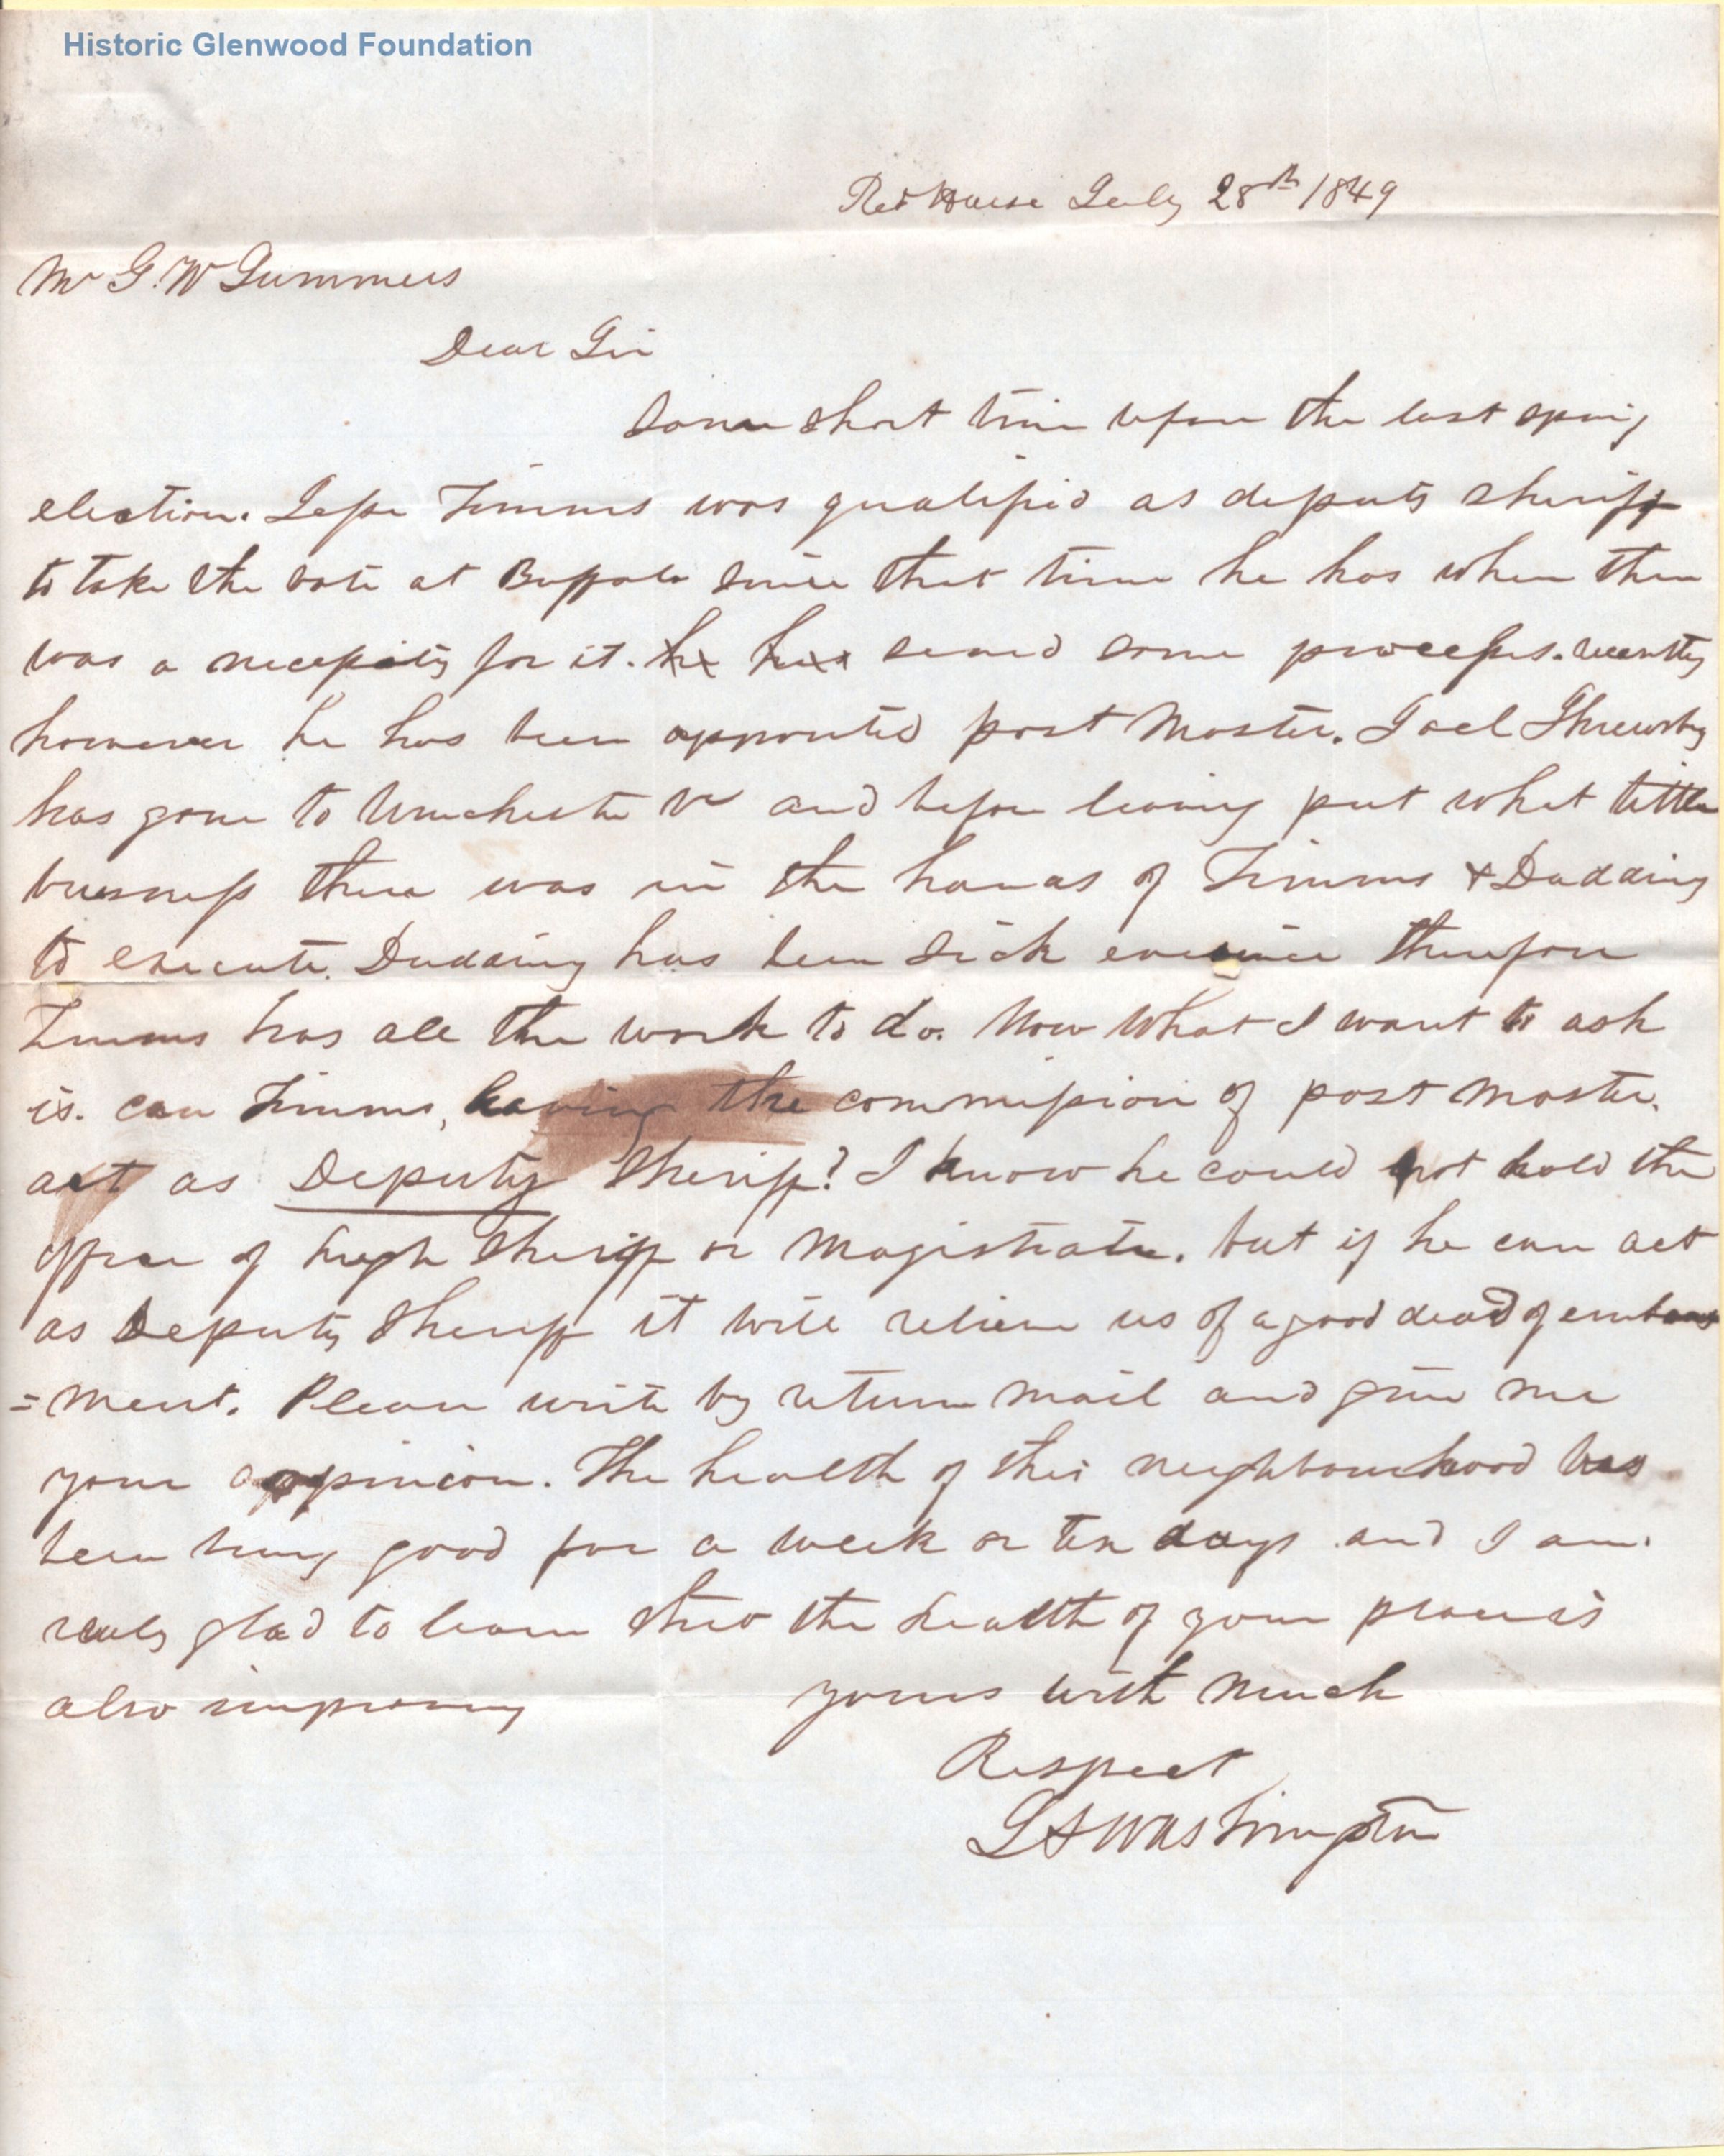 Historic Glenwood Foundation
Red House July 28th 1849
Mr G. W Summers
Dear Sir
Some short time before the last spring
election. Jesse Timms was qualified as deputy sheriff
to take the vote at Buffalo since that time he has when there
was a necessity for it. he has served some processes. recently
however he has been appointed post Master. Joel Shrewsby
has gone to Winchester Va and before leaving put what little
business there was in the hands of Timms & Dudding
to execute. Dudding has been sick ever since therefore
Timms has all the work to do. Now What I want to ask
is. can Timms, having the commission of post Master.
act as Deputy Sheriff? I know he could not hold the
office of high Sheriff or Magistrate. but if he can act
as Deputy Sheriff it will relieve us of a good deal of embarass
=ment. Please write by return Mail and give me
your oppinion. The health of this neighbourhood has
been very good for a week or ten days and I am.
realy glad to learn that the health of your place is
also improving yours with Much
Respect
L A Washington